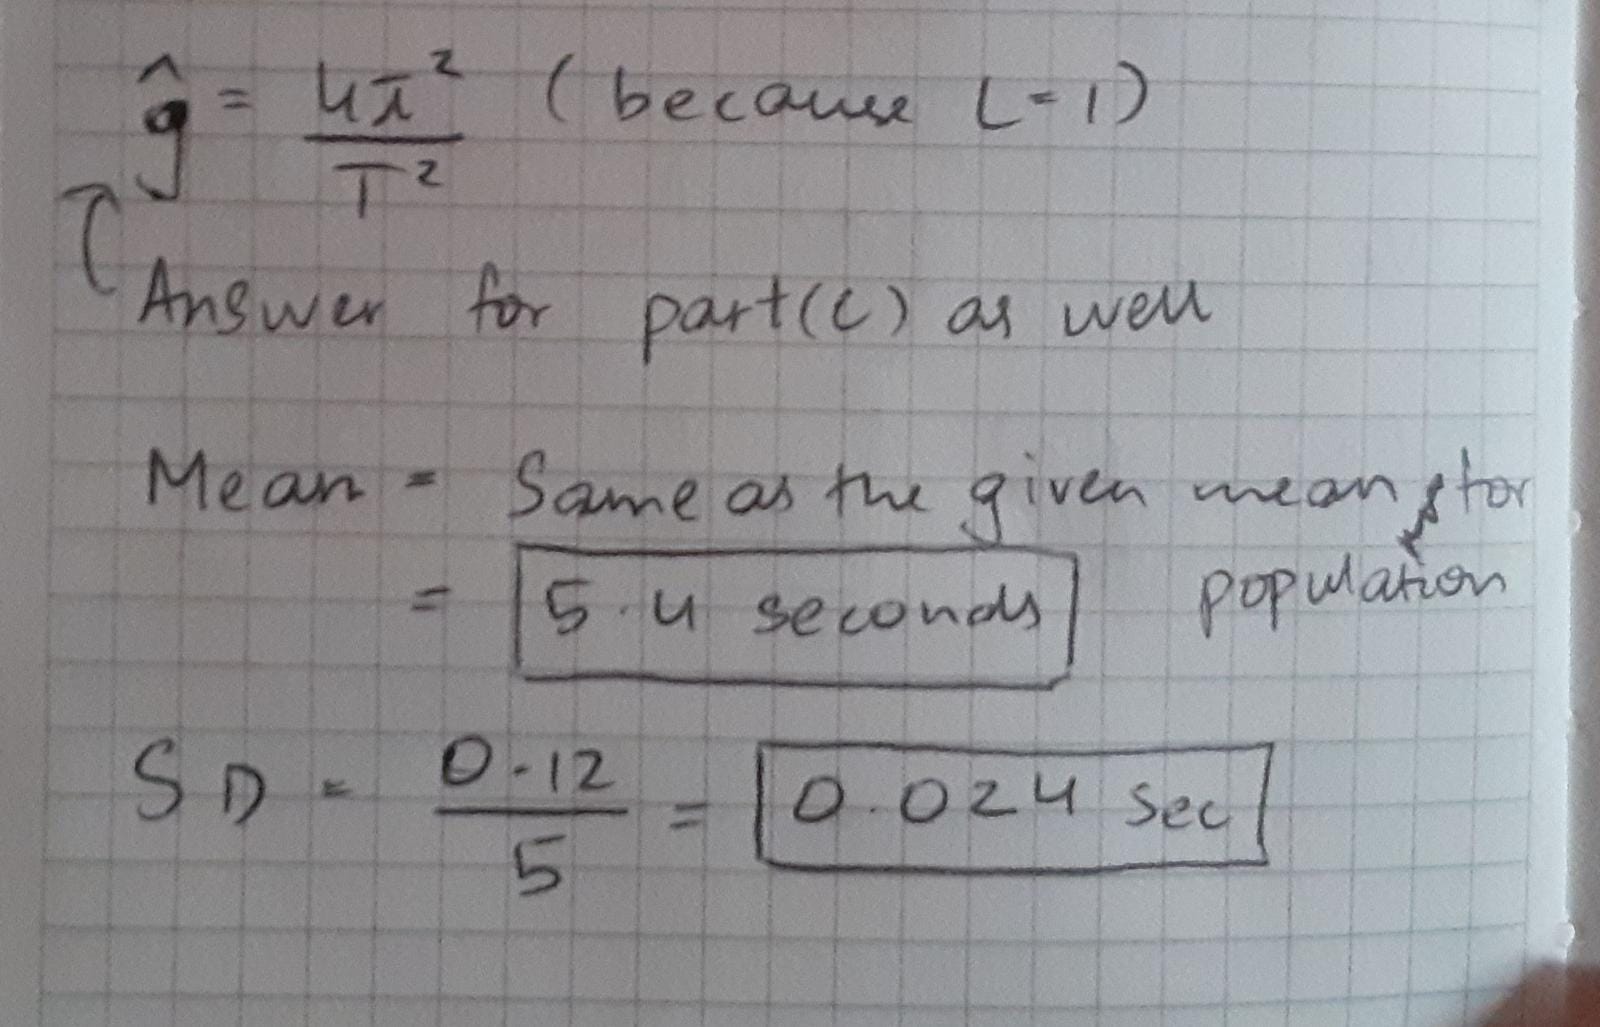 ĝ = 4π² / T² (because L=1)
Answer for part(c) as well
Mean = Same as the given mean for
population
= 5.4 seconds
SD = 0.12 / 5 = 0.024 sec